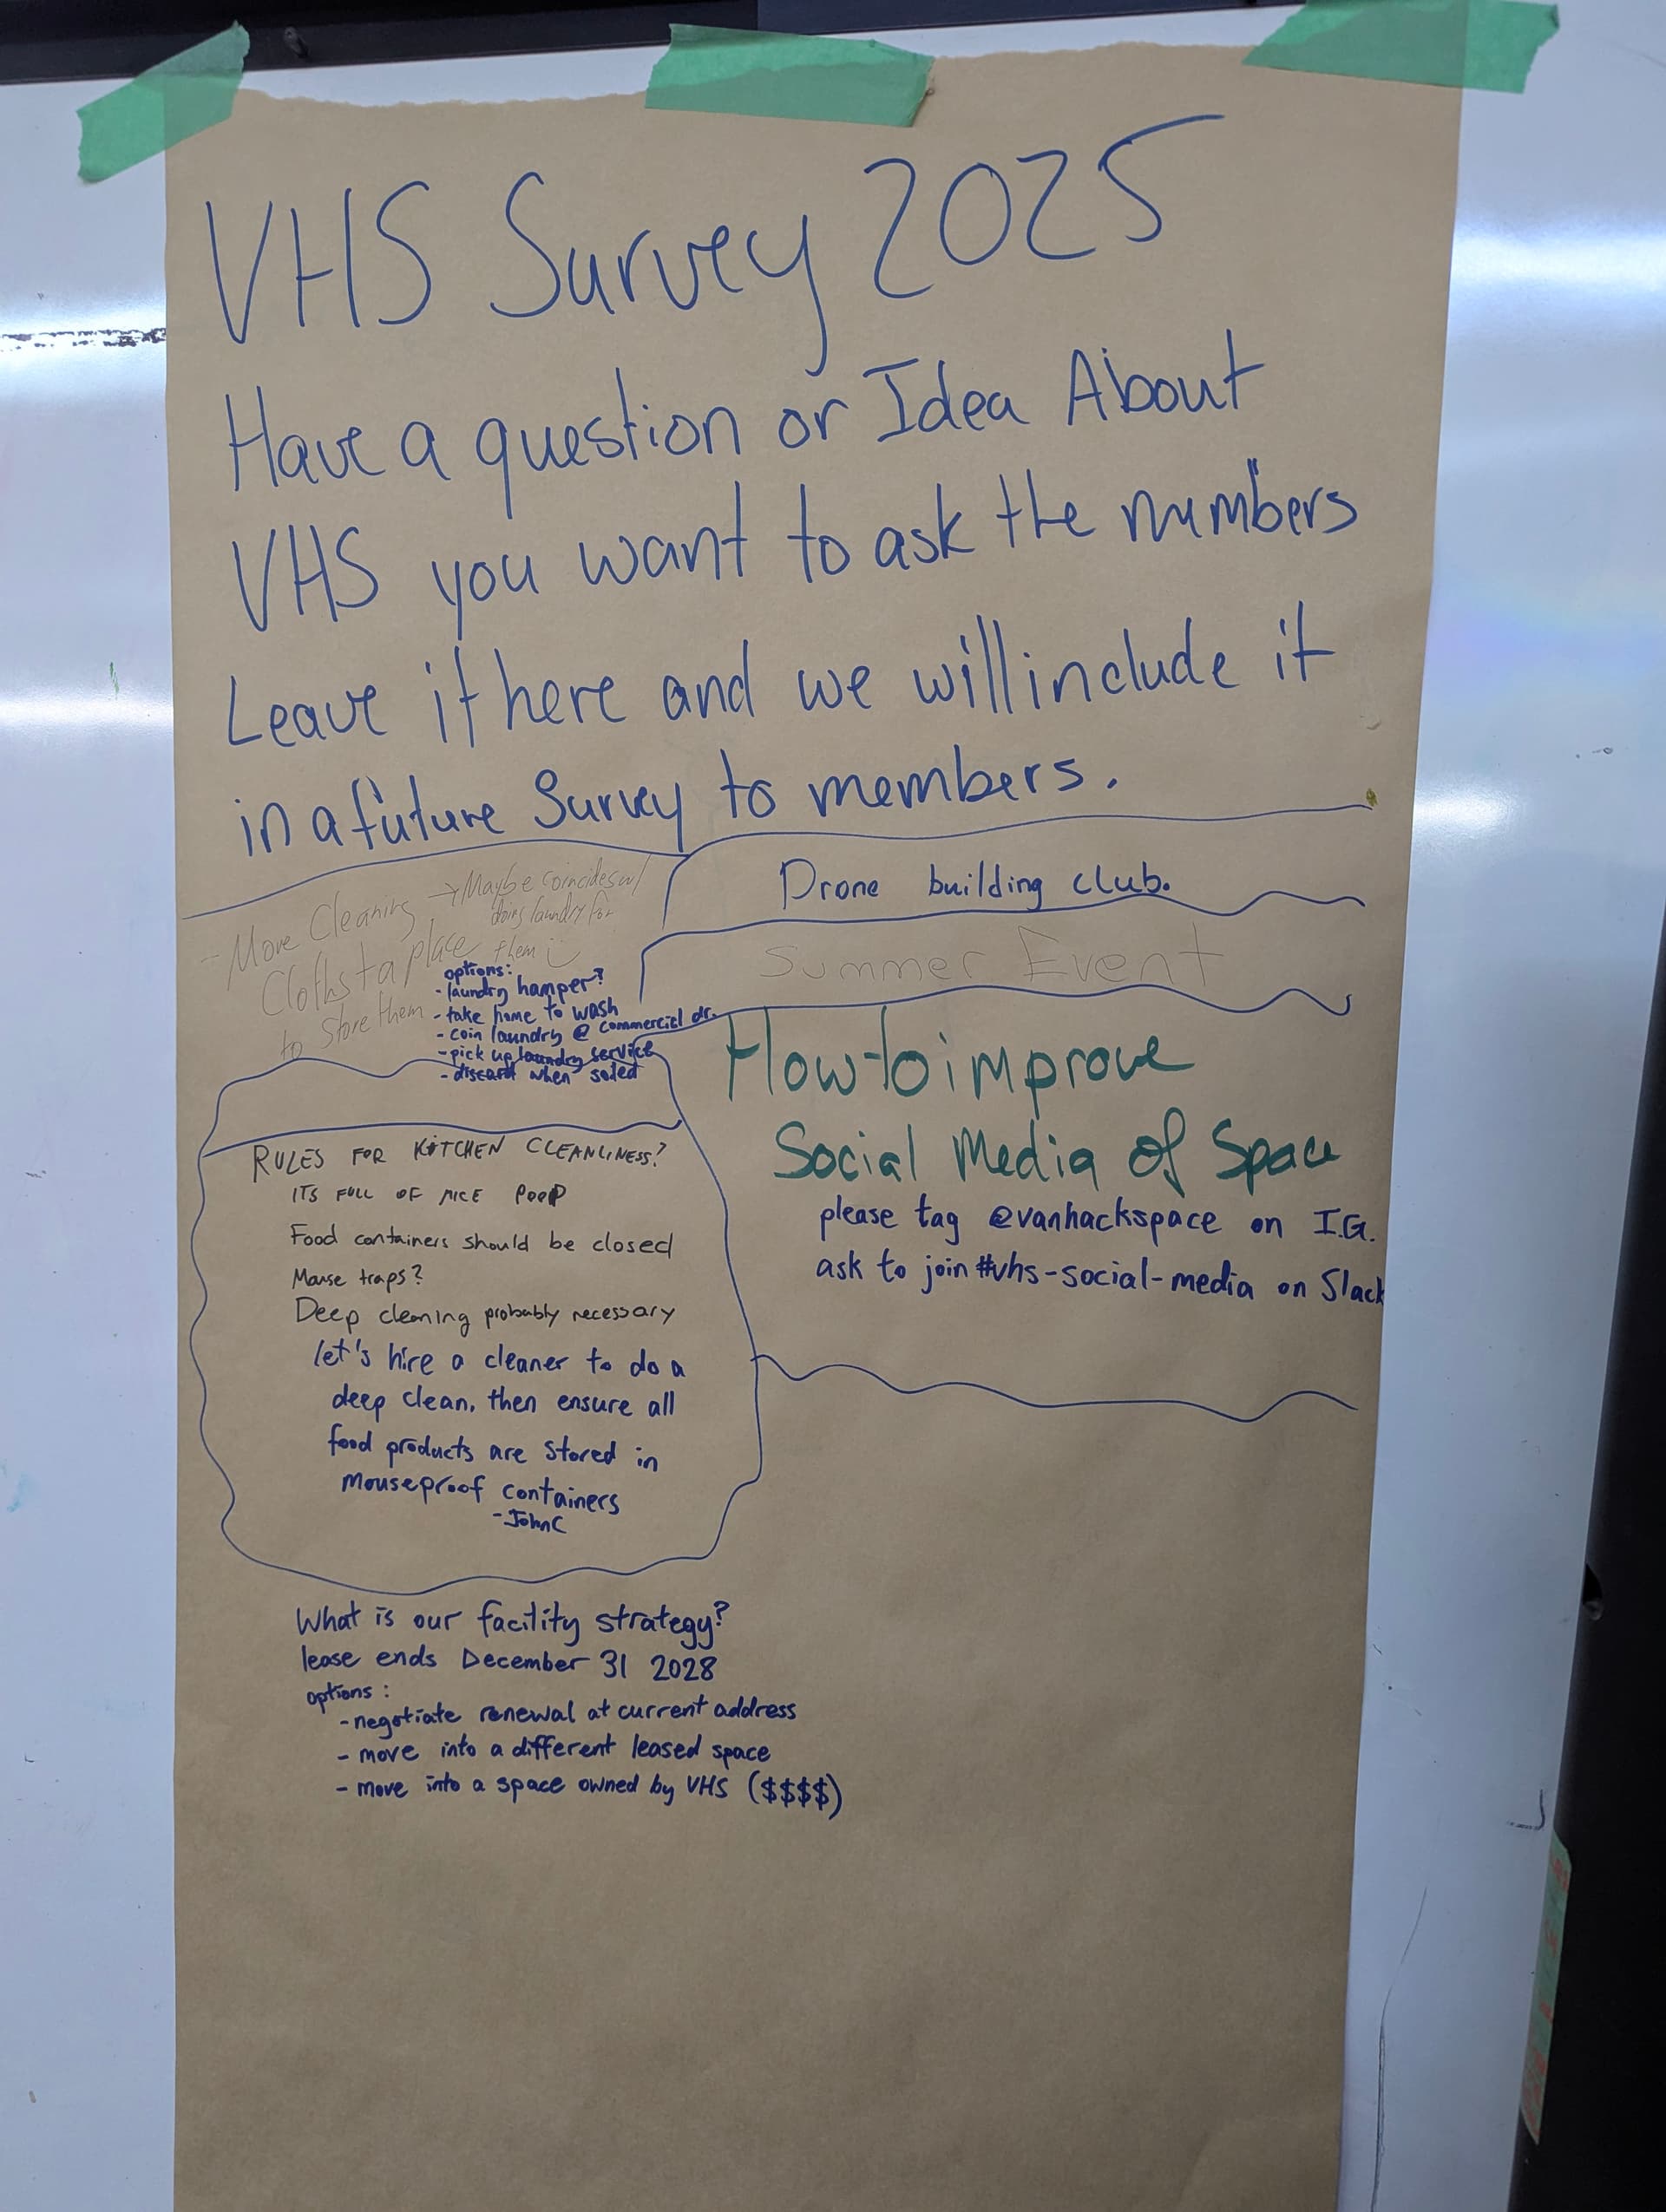 VHS Survey 2025
Have a question or Idea About
VHS you want to ask the members
Leave it here and we will include it
in a future Survey to members.
- More Cleaning → Maybe coincides w/
doing laundry for
them
Cloths + a place
to store them
options:
- laundry hamper?
- take home to wash
- coin laundry @ commercial dr.
- pick up laundry service
- discard when soiled
Drone building club.
Summer Event
How to improve
Social Media of Space
please tag @vanhackspace on I.G.
ask to join #vhs-social-media on Slack
RULES FOR KITCHEN CLEANLINESS?
ITS FULL OF MICE POOP
Food containers should be closed
Mouse traps?
Deep cleaning probably necessary
let's hire a cleaner to do a
deep clean, then ensure all
food products are stored in
mouseproof containers
- JohnC
What is our facility strategy?
lease ends December 31 2028
options:
- negotiate renewal at current address
- move into a different leased space
- move into a space owned by VHS ($$$$)